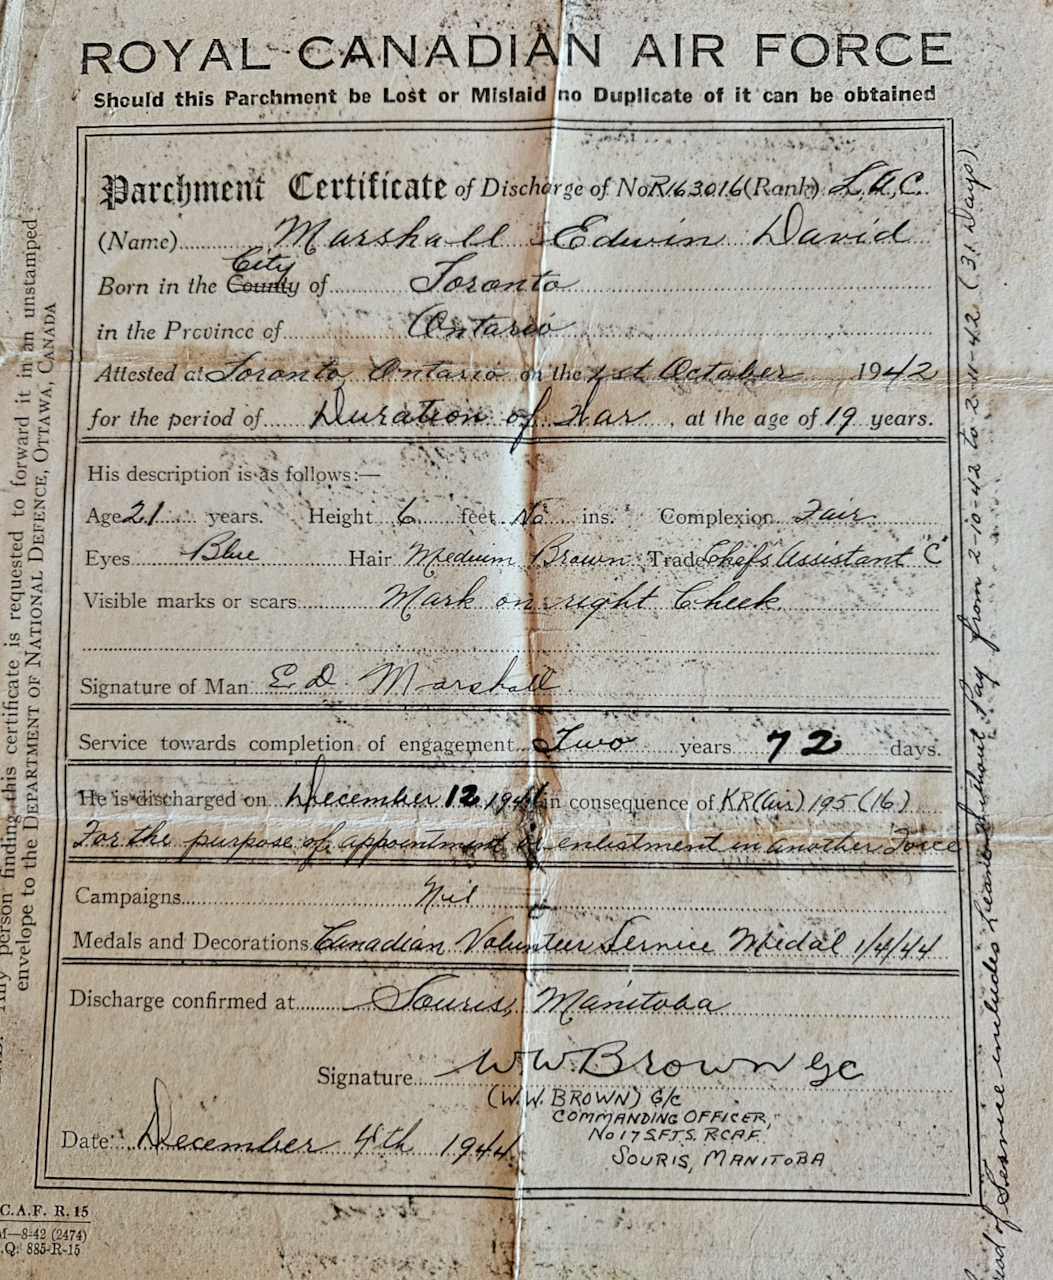 ROYAL CANADIAN AIR FORCE
Should this Parchment be Lost or Mislaid no Duplicate of it can be obtained
Parchment Certificate of Discharge of No R163016 (Rank) L.A.C.
(Name) Marshall Edwin David
City
Born in the County of Toronto
in the Province of Ontario
Attested at Toronto Ontario on the 1st October 1942
for the period of Duration of War, at the age of 19 years.
His description is as follows:—
Age 21 years. Height 6 feet No ins. Complexion Fair
Eyes Blue Hair Medium Brown Trade Chefs Assistant "C"
Visible marks or scars Mark on right Cheek.
Signature of Man E D Marshall
Service towards completion of engagement Two years 72 days.
He is discharged on December 12 1944 in consequence of KR(Air) 195 (16)
For the purpose of appointment or enlistment in another Force
Campaigns Nil
Medals and Decorations Canadian Volunteer Service Medal 1/4/44
Discharge confirmed at Souris, Manitoba
Signature W W Brown G/C
(W.W. BROWN) G/C
COMMANDING OFFICER,
No 17 S.F.T.S. R.C.A.F.
Date December 4th 1944
SOURIS, MANITOBA
person finding this certificate is requested to forward it in an unstamped
envelope to the DEPARTMENT OF NATIONAL DEFENCE, OTTAWA, CANADA
of Service includes Leave without Pay from 2-10-42 to 2-11-42 (31 Days)
C.A.F. R. 15
M—8-42 (2474)
.Q. 885-R-15